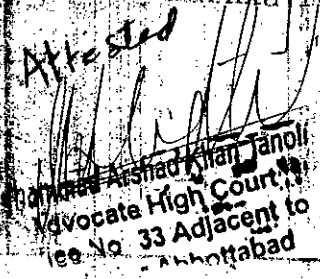 Attested
Arshad Khan Tanoli
Advocate High Court
No. 33 Adjacent to
Abbottabad